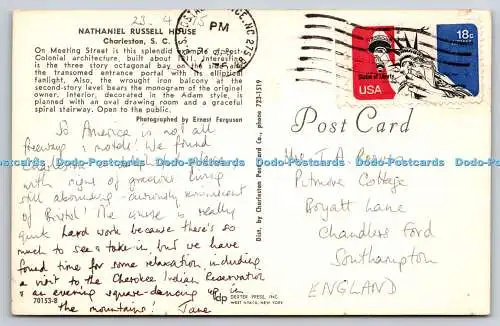 23. 4. 75
NATHANIEL RUSSELL HOUSE
Charleston, S. C.
On Meeting Street is this splendid example of post-
Colonial architecture, built about 1811. Interesting
is the three story octagonal bay on the side and
the transomed entrance portal with its elliptical
fanlight. Also, the wrought iron balcony at the
second-story level bears the monogram of the original
owner. Interior, decorated in the Adam style, is
planned with an oval drawing room and a graceful
spiral stairway. Open to the public.
Photographed by Ernest Ferguson
So America is not all
freeways & motels! We found
Charleston
with signs of gracious living
still abounding - curiously reminiscent
of Bristol! The course is really
quite hard work because there's so
much to see & take in, but we have
found time for some relaxation, including
a visit to the Cherokee Indian Reservation
& an evening square-dancing up in
the mountains! Jane
70153-B
DEXTER PRESS, INC.
WEST NYACK, NEW YORK
Dist. by Charleston Postcard Co., phone 723-1519
PM
18c
Statue of Liberty
USA
Post Card
J. A.
Pitmore Cottage
Boyatt Lane
Chandlers Ford
Southampton
ENGLAND
Dodo-Postcards Dodo-Postcards Dodo-Postcards Dodo-Postcards Dodo-Postcards